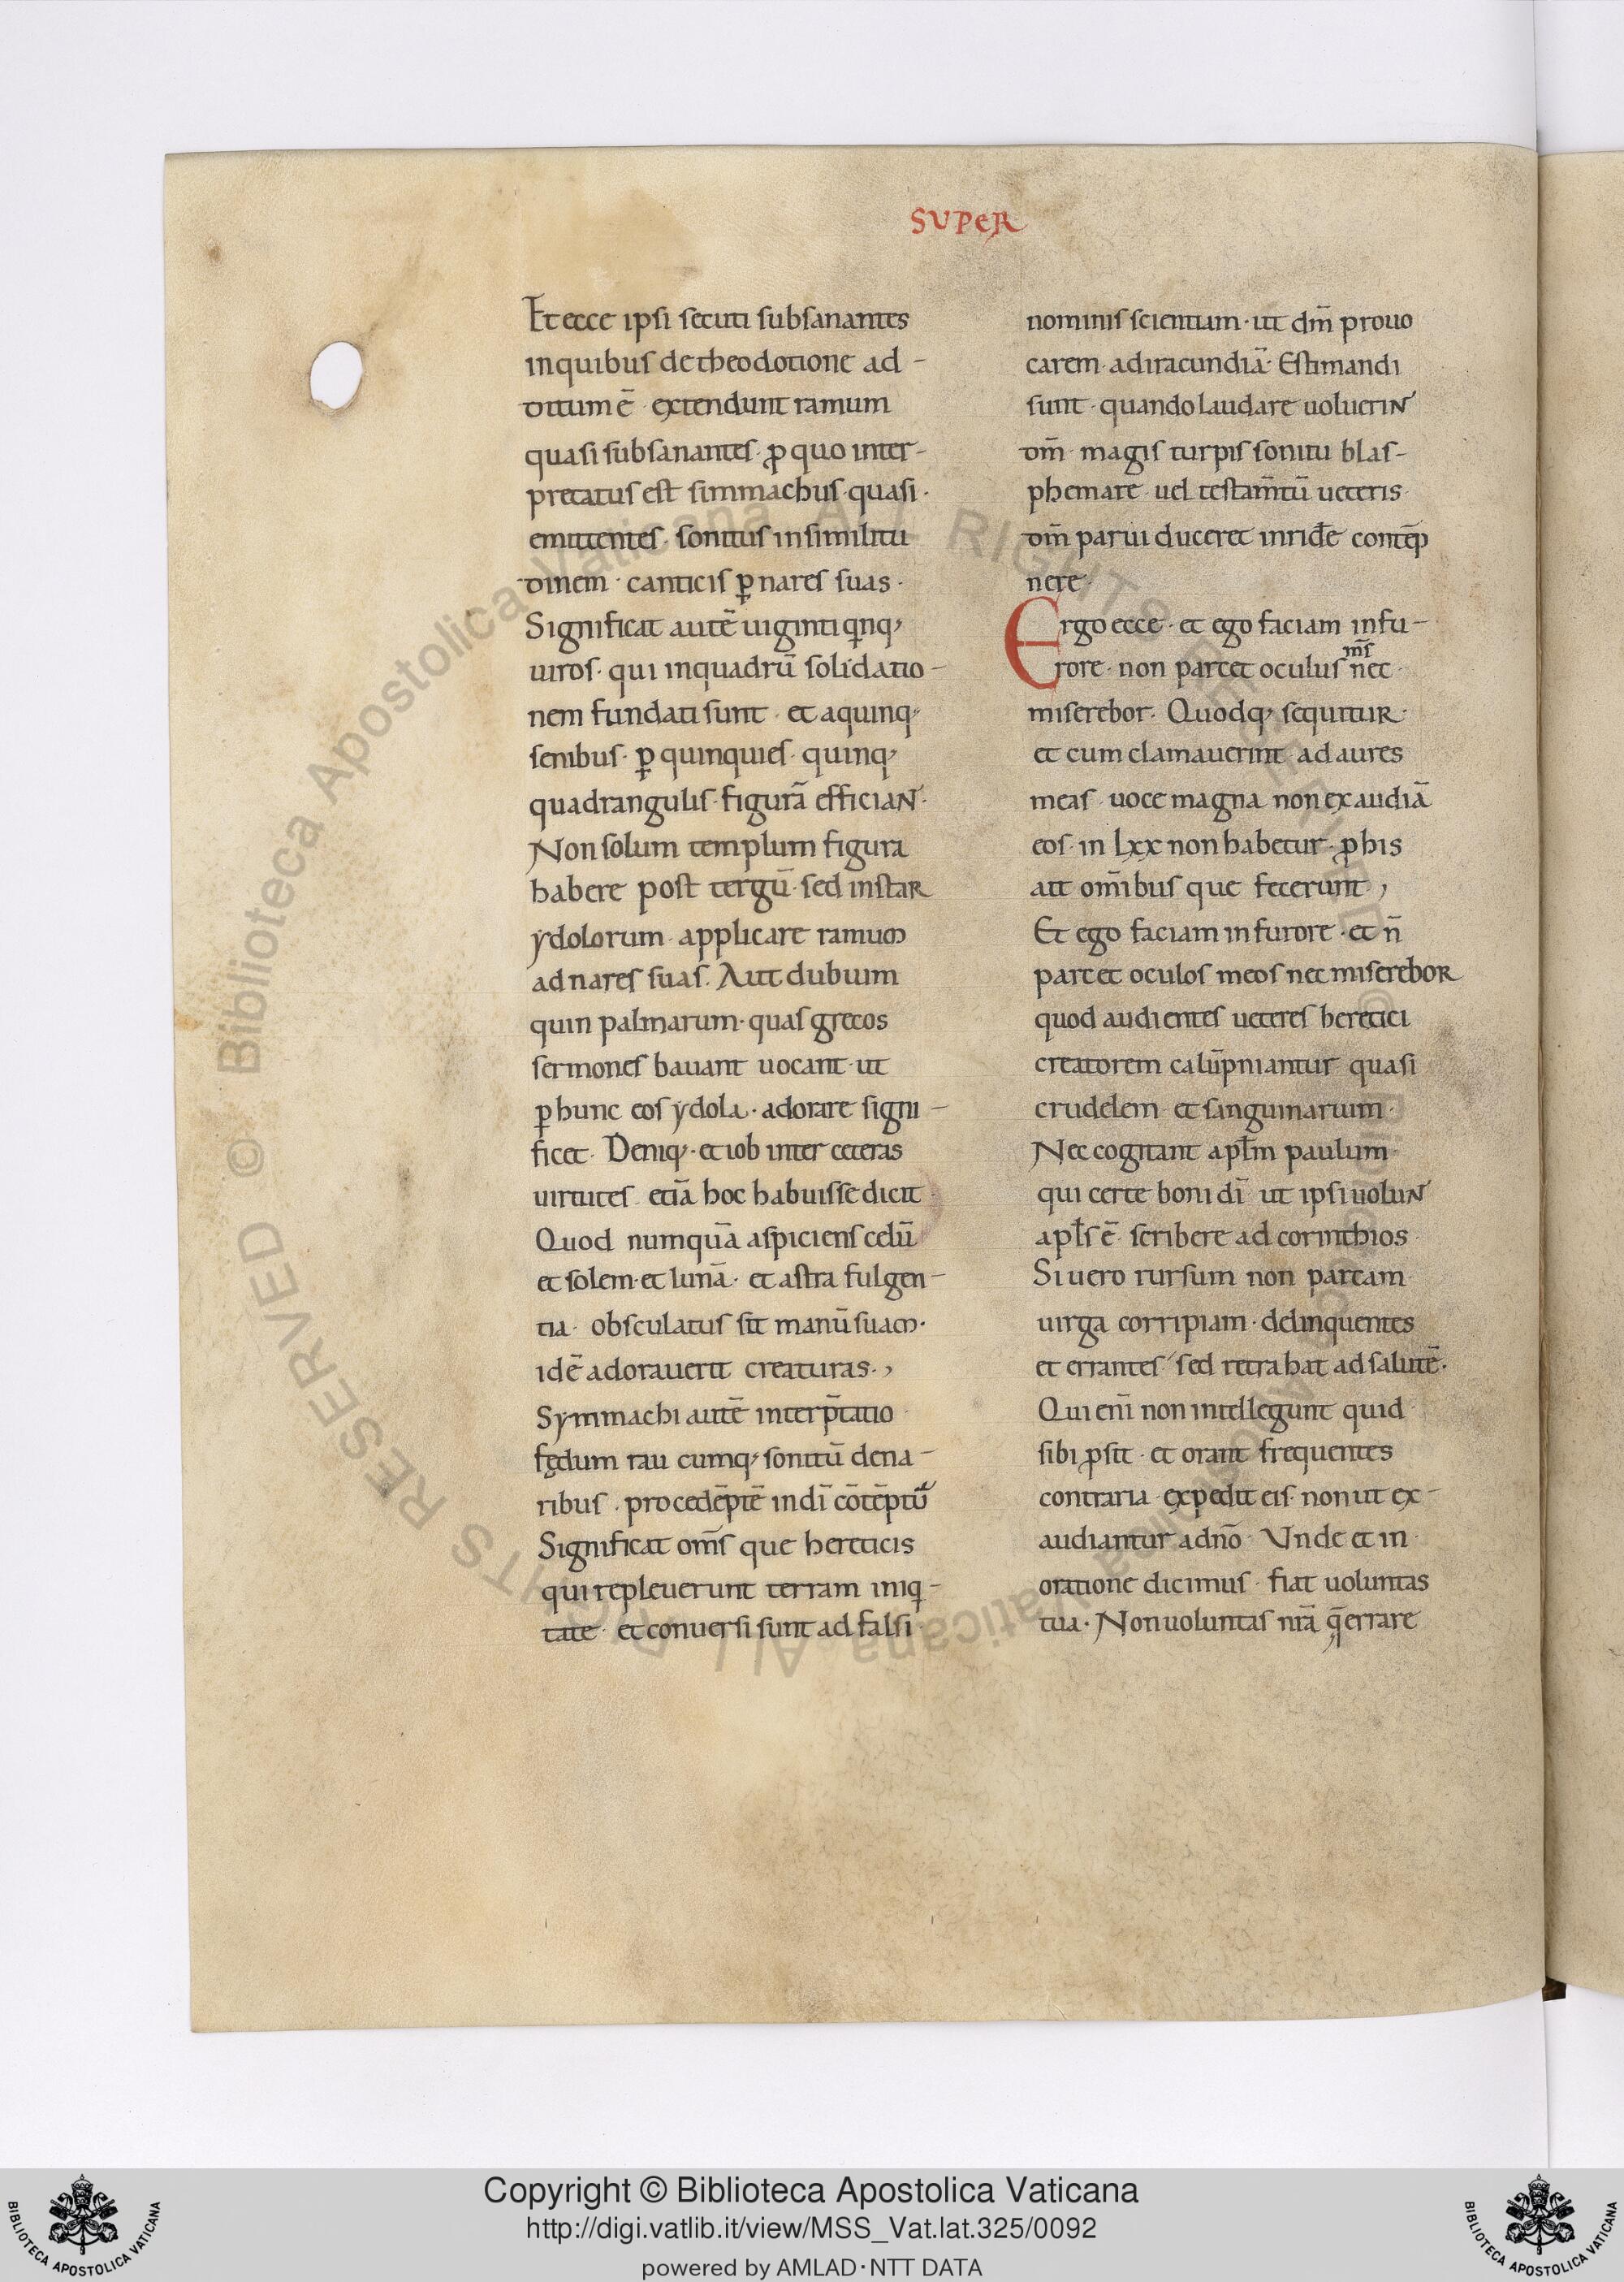 SUPER
Et ecce ipsi secuti subsanantes
inquibus de theodotione ad -
ditum ē · extendunt ramum
quasi subsanantes · ꝓ quo inter -
pretatus est simmachus · quasi ·
emittentes · sonitus in similitu
dinem · canticis ꝑ nares suas ·
Significat autē uiginti qinq;
uiros · qui inquadrū solidatio -
nem fundati sunt · et aquinq;
senibus · ꝑ quinquies · quinq;
quadrangulis · figurā efficiaN ·
Non solum templum figura
habere post tergū · sed instar
ydolorum applicare ramum
ad nares suas. Aut dubium
quin palmarum · quas grecos
sermones bauant uocant · ut
ꝑ hunc eos ydola · adorare signi -
ficet · Deniq; · et iob inter ceteras
uirtutes etiā hoc habuisse dicit ·
Quod numquā aspiciens celū
et solem · et lunā · et astra fulgen -
tia · obsculatus sit manū suam ·
idē adorauerit creaturas · ,
Symmachi autē interp̄tatio
fędum rau cumq; sonitū dena -
ribus · procedēptē indī cōtēptū
Significat om̄s que hereticis
qui repleuerunt terram iniq -
tate · et conuersi sunt ad falsi
nominis scientiam · ut dm̄ prouo
carem · ad iracundiā · Estimandi
sunt · quando laudare uoluerıN
dm̄ · magis turpis sonitu blas -
phemare · uel testam̄tū ueteris ·
dm̄ parui duceret inride contēp
nere ·
Ergo ecce · et ego faciam in fu -
rore · non parcet oculus m̄s nec ·
miserebor · Quodq; sequituR ·
et cum clamauerint · ad aures
meas · uoce magna non exaudiā
eos · in Lxx non habetur · ꝓ his
ait om̄ibus que fecerunt ,
Et ego faciam in furore · et n̄
parcet oculos meos nec misereboR
quod audientes ueteres heretici
creatorem calūpniantur quasi
crudelem et sanguinarium ·
Nec cogitant apłm paulum
qui certe boni dī ut ipsi uoluN
apłs ē · scribere ad corinthios ·
Si uero rursum non parcam
uirga corripiam · delinquentes
et errantes sed retrahat ad salutē ·
Qui enī non intellegunt quid
sibi ꝓsit · et orant frequentes
contraria · expedit eis · non ut ex -
audiantur adn̄o · Vnde et in
oratione dicimus · fiat uoluntas
tua · Non uoluntas nr̄a q̄ errare
© Biblioteca Apostolica Vaticana ALL RIGHTS RESERVED
Copyright © Biblioteca Apostolica Vaticana
http://digi.vatlib.it/view/MSS_Vat.lat.325/0092
powered by AMLAD·NTT DATA
BIBLIOTECA APOSTOLICA VATICANA
BIBLIOTECA APOSTOLICA VATICANA